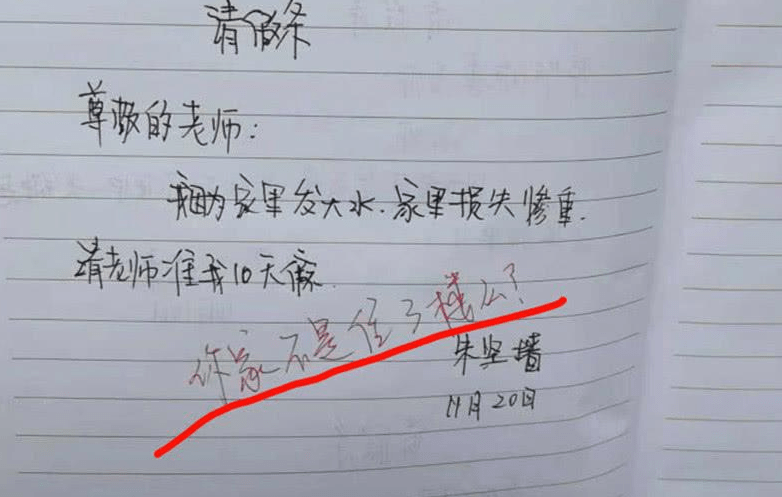 请假条
尊敬的老师:
我因为家里发大水.家里损失惨重.
请老师准我10天假.
你家不是住3楼么?
朱坚墙
11月20日